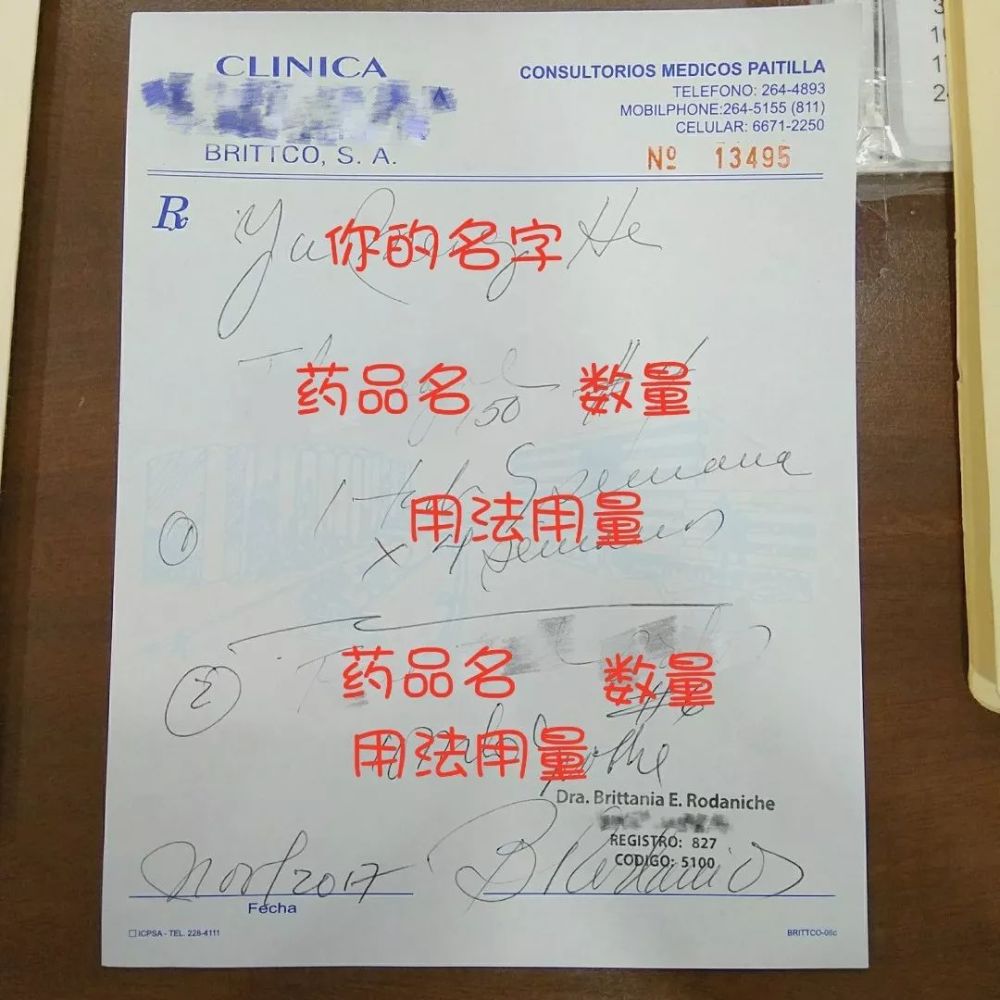 CLINICA
BRITTCO, S. A.
CONSULTORIOS MEDICOS PAITILLA
TELEFONO: 264-4893
MOBILPHONE:264-5155 (811)
CELULAR: 6671-2250
Nº 13495
Rx
Yu He
你的名字
药品名 数量
150
1 Semana
用法用量
① x 4 semanas
②
药品名 数量
#6
用法用量
noche
Dra. Brittania E. Rodaniche
REGISTRO: 827
CODIGO: 5100
2017
Fecha
ICPSA - TEL. 228-4111
BRITTCO-08c